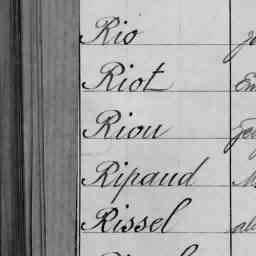 Rio
Riot
Riou
Ripaud
Rissel